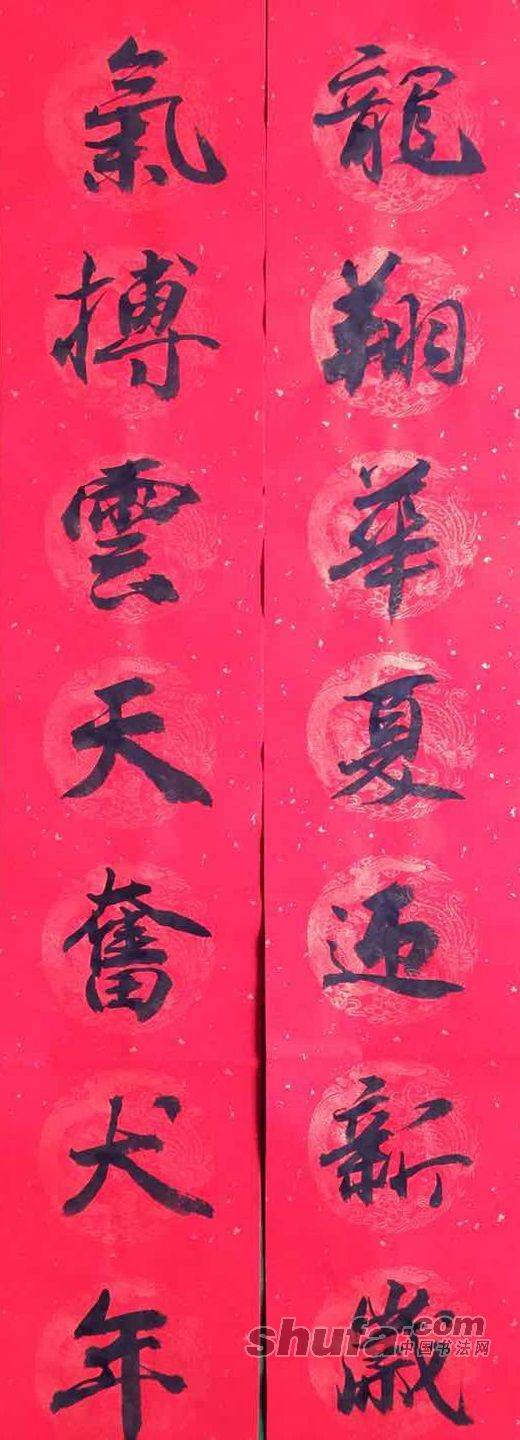 龍翔華夏迎新歲
氣搏雲天奮犬年
shufa.com
中国书法网